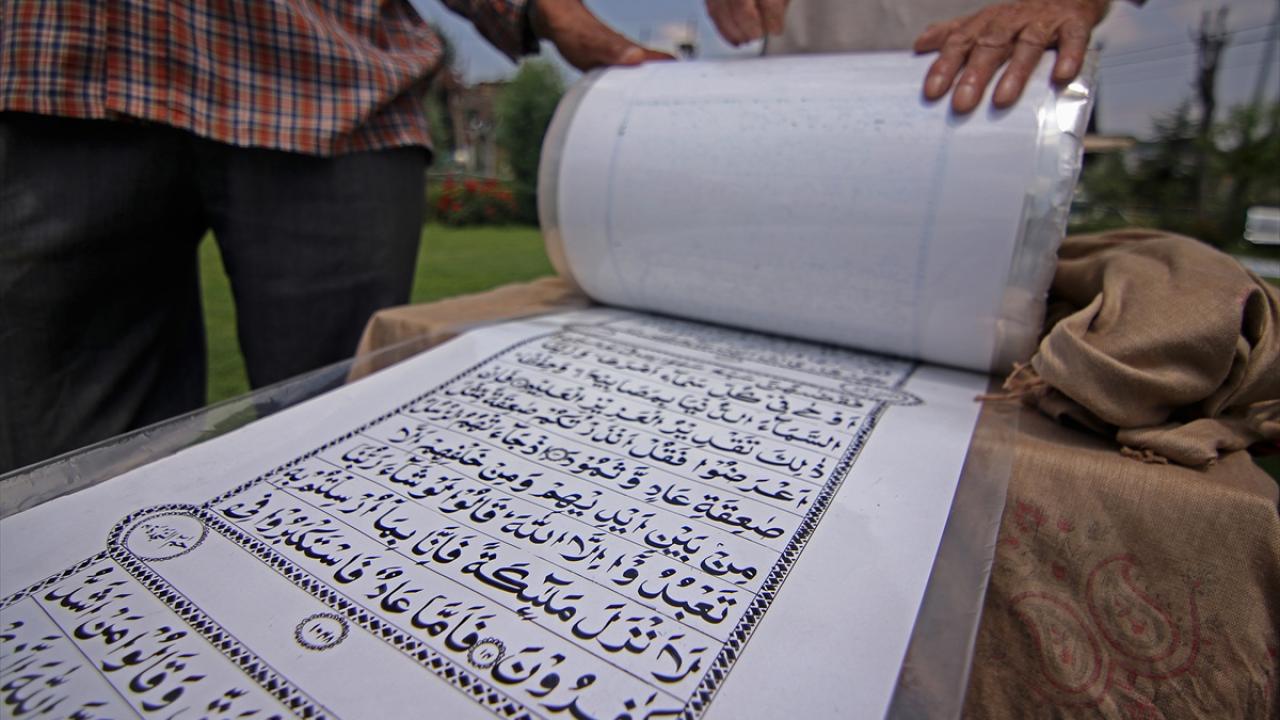 وَاَوْحٰى فِيْ كُلِّ سَمَآءٍ اَمْرَهَا وَزَيَّنَّا
السَّمَآءَ الدُّنْيَا بِمَصَابِيْحَ وَحِفْظًا
ذٰلِكَ تَقْدِيْرُ الْعَزِيْزِ الْعَلِيْمِ فَاِنْ
اَعْرَضُوْا فَقُلْ اَنْذَرْتُكُمْ صٰعِقَةً مِّثْلَ
صٰعِقَةِ عَادٍ وَّثَمُوْدَ اِذْ جَآءَتْهُمُ الرُّسُلُ
مِنْۢ بَيْنِ اَيْدِيْهِمْ وَمِنْ خَلْفِهِمْ اَلَّا
تَعْبُدُوْٓا اِلَّا اللّٰهَ قَالُوْا لَوْ شَآءَ رَبُّنَا
لَاَنْزَلَ مَلٰٓئِكَةً فَاِنَّا بِمَآ اُرْسِلْتُمْ بِهٖ
كٰفِرُوْنَ ١٤ فَاَمَّا عَادٌ فَاسْتَكْبَرُوْا فِي
وَقَالُوْا مَنْ اَشَدُّ